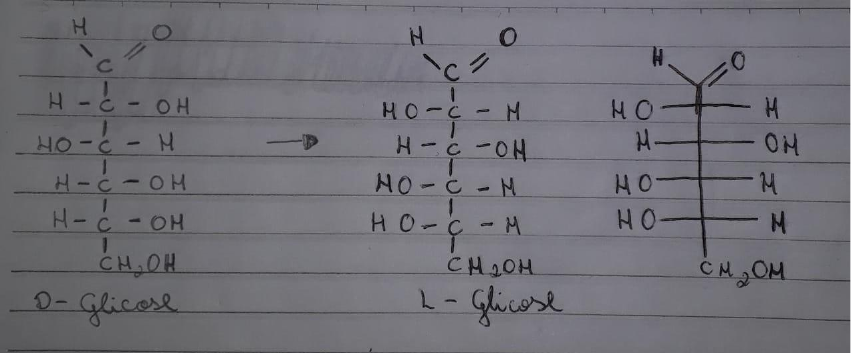 H O H O H O
C C
H - C - OH HO - C - H HO H
HO - C - H H - C - OH H OH
H - C - OH HO - C - H HO H
H - C - OH HO - C - H HO H
CH2OH CH2OH CH2OH
D - Glicose L - Glicose